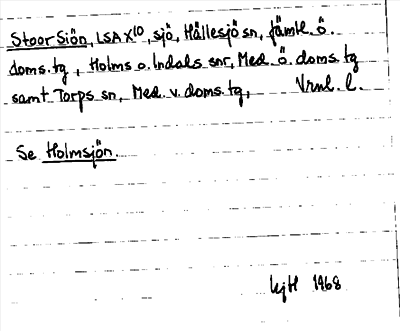 Stoor Siön, LSA X10, sjö, Hällesjö sn, Jämtl. ö.
doms. tg, Holms o. Indals snr, Med. ö. doms. tg
samt Torps sn, Med. v. doms. tg, Vrnl. l.
Se Holmsjön.
1968